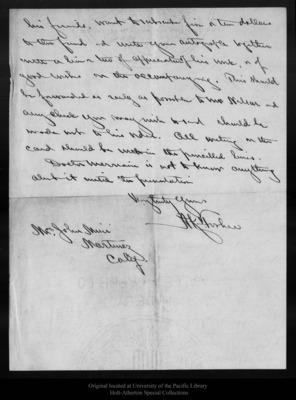 his friends, want to subscribe five or ten dollars
to this fund and write your autograph together
with a line or two of appreciation of his work, & of
good wishes on the accompanying. This should
be forwarded as early as possible to Mr and
any check you may wish to send should be
made out to his order. All writing on the
card should be within the pencilled lines.
Doctor Merriam is not to know anything
about it until the presentation.
Very truly yours
Mr. John Muir
Martinez
Calif.
Original located at University of the Pacific Library
Holt-Atherton Special Collections